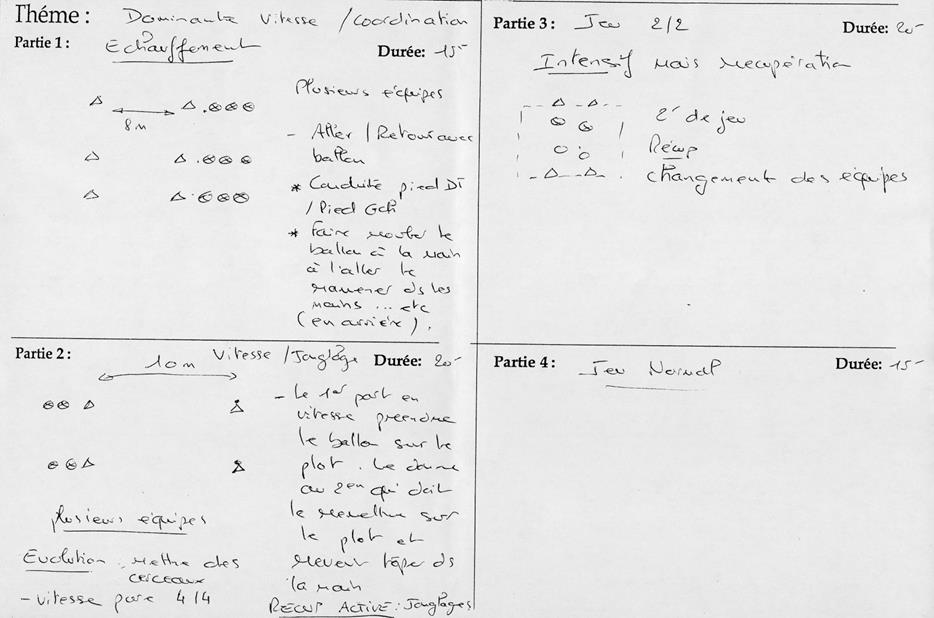 Théme : Dominante vitesse / coordination
Partie 1 : Echauffement Durée: 15'
8 m
Plusieurs équipes
- Aller / Retour avec
ballon
* Conduite pied DT
/ Pied Gch
* Faire monter le
ballon à la main
à l'aller le
ramener ds les
mains ... etc
(en arrière).
Partie 2 : Vitesse / Jonglage Durée: 20'
10 m
- Le 1er part en
vitesse prendre
le ballon sur le
plot. Le donne
au 2em qui doit
le remettre sur
le plot et
revenir tape ds
la main
RECUP ACTIVE : Jonglages
plusieurs équipes
Evolution . Mettre des
cerceaux
- vitesse pure 4/4
Partie 3 : Jeu 2/2 Durée: 20'
Intensif mais récupération
2' de jeu
Récup
changement des équipes
Partie 4 : Jeu Normal Durée: 15'